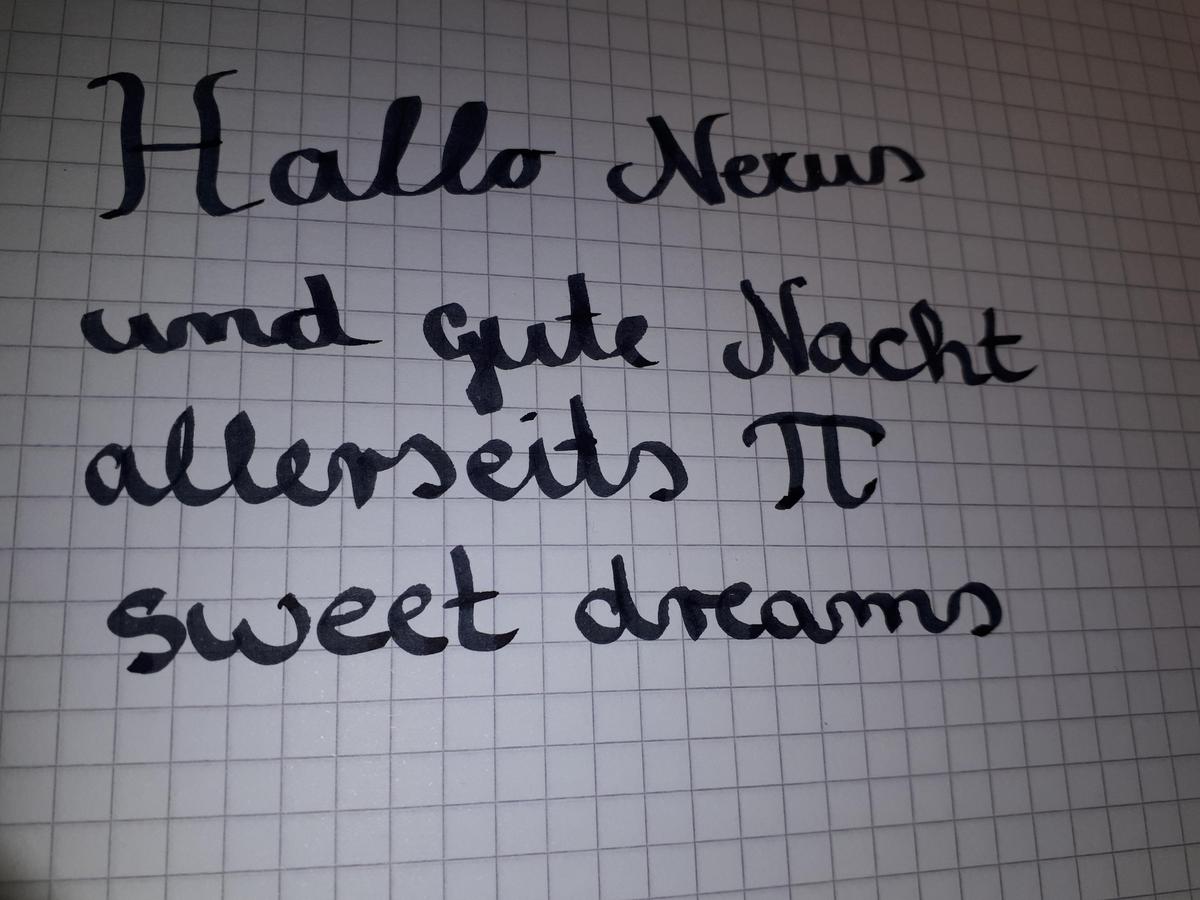 Hallo Nexus
und gute Nacht
allerseits π
sweet dreams